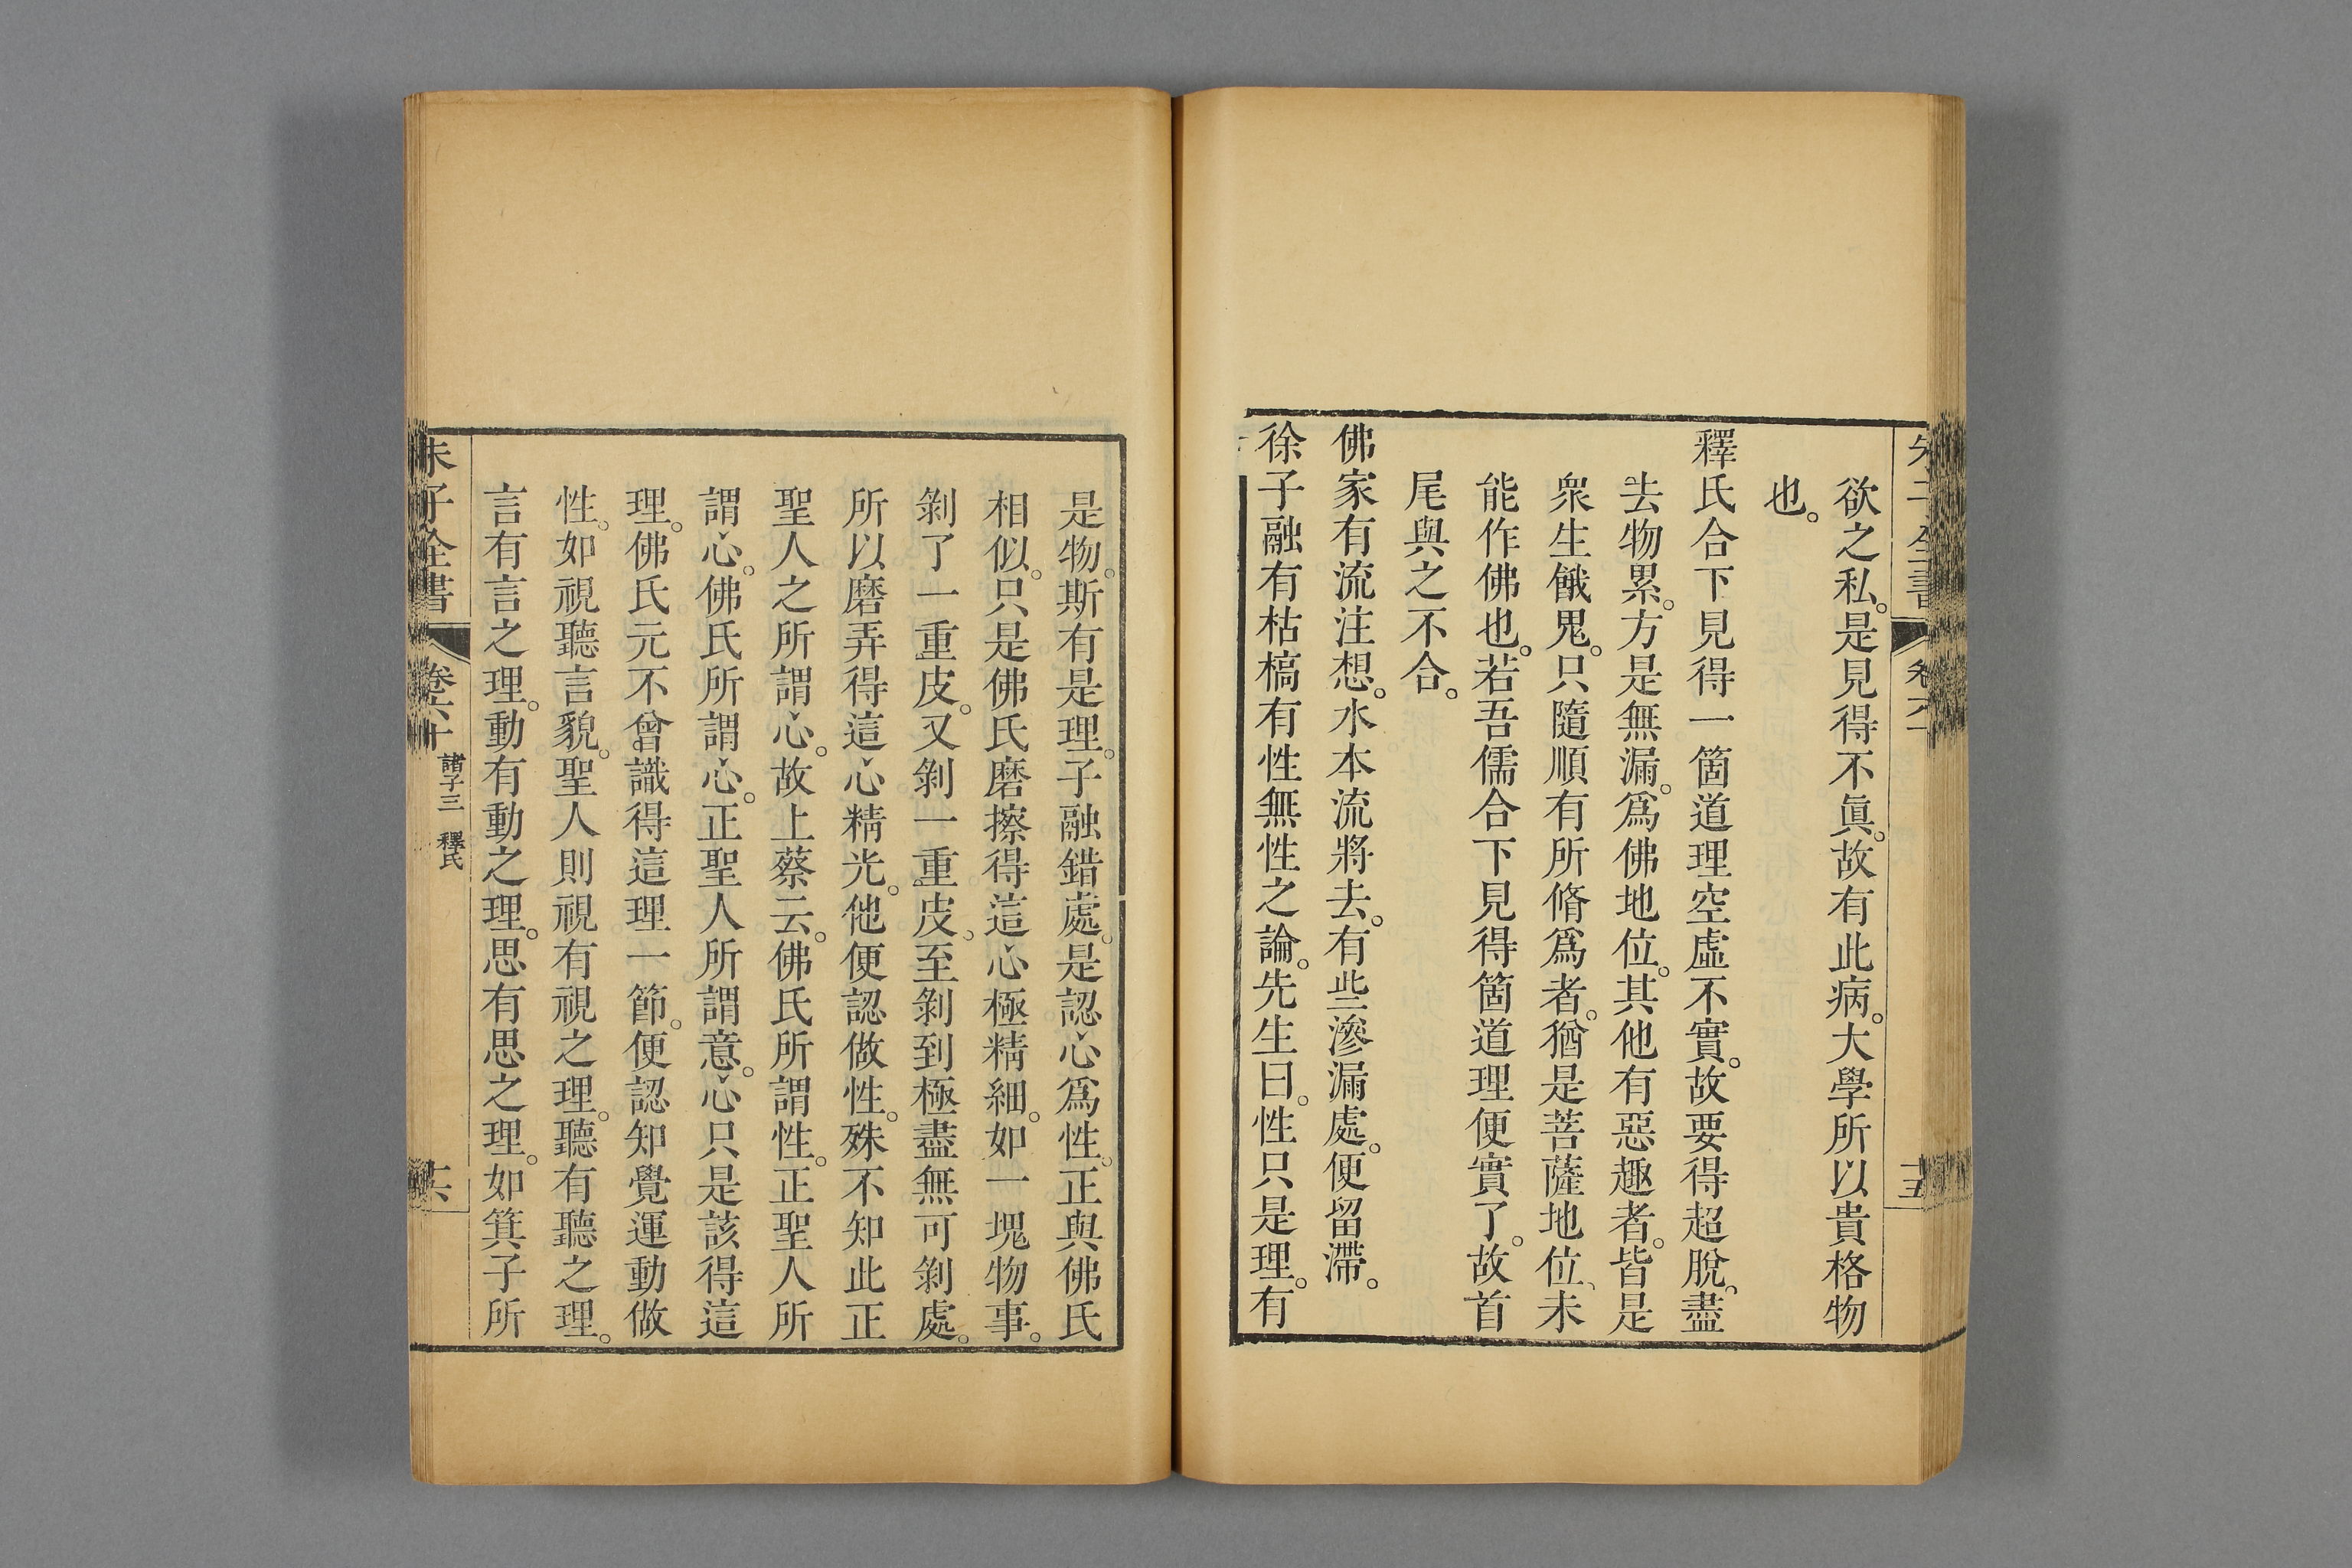 欲之私。是見得不眞。故有此病。大學所以貴格物
也。
釋氏合下見得一箇道理空虛不實。故要得超脫。盡
去物累。方是無漏。爲佛地位。其他有惡趣者。皆是
衆生餓鬼。只隨順有所脩爲者。猶是菩薩地位、未
能作佛也。若吾儒合下見得箇道理便實了。故首
尾與之不合。
佛家有流注想。水本流將去。有些滲漏處。便留滯。
徐子融有枯槁有性無性之論。先生曰。性只是理。有
是物。斯有是理。子融錯處。是認心爲性。正與佛氏
相似。只是佛氏磨擦得這心極精細。如一塊物事。
剝了一重皮。又剝一重皮。至剝到極盡無可剝處。
所以磨弄得這心精光。他便認做性。殊不知此正
聖人之所謂心。故上蔡云。佛氏所謂性。正聖人所
謂心。佛氏所謂心。正聖人所謂意。心只是該得這
理。佛氏元不曾識得這理一節。便認知覺運動做
性。如視聽言貌。聖人則視有視之理。聽有聽之理。
言有言之理。動有動之理。思有思之理。如箕子所
朱子全書
卷六十
諸子三 釋氏
十六